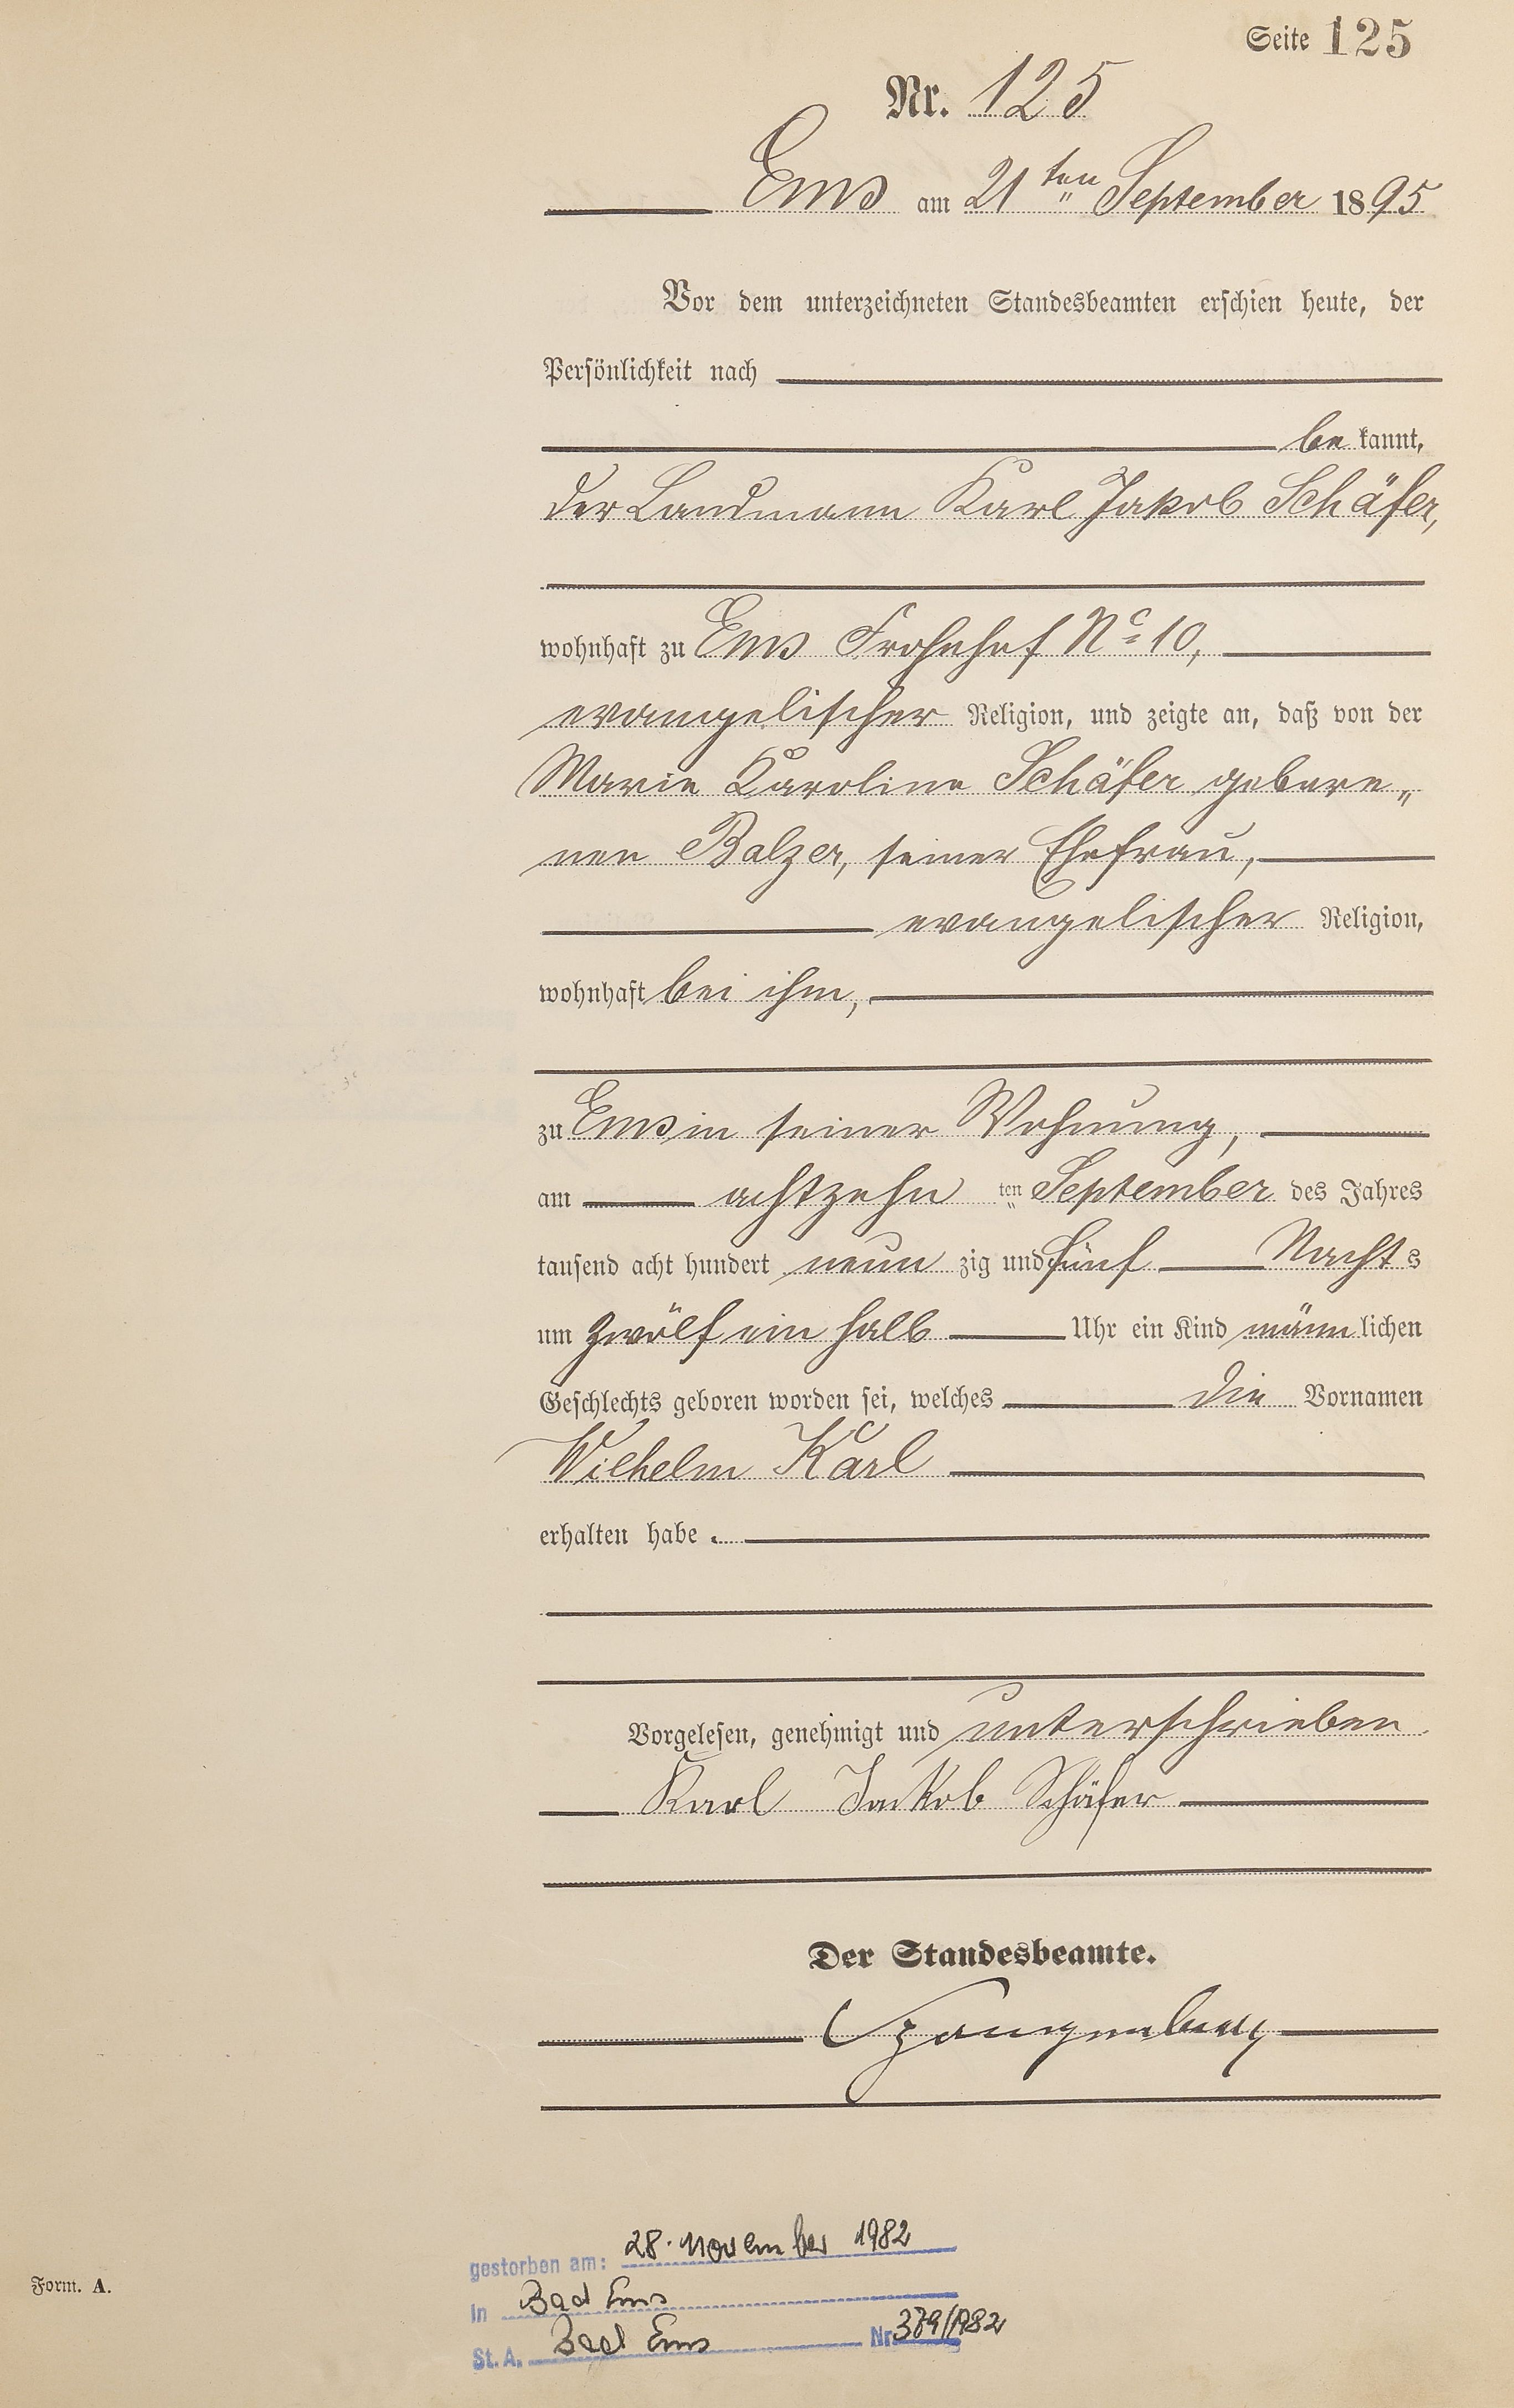 Seite 125
Nr. 125
Ems am 21ten September 1895
Vor dem unterzeichneten Standesbeamten erschien heute, der
Persönlichkeit nach
be kannt,
der Landmann Karl Jakob Schäfer,
wohnhaft zu Ems Frohnhof No 10,
evangelischer Religion, und zeigte an, daß von der
Marie Karoline Schäfer gebore„
nen Balzer, seiner Ehefrau,
evangelischer Religion,
wohnhaft bei ihm,
zu Ems in seiner Wohnung,
am achtzehn ten September des Jahres
tausend acht hundert neun zig und fünf Nacht s
um zwölf ein halb Uhr ein Kind männ lichen
Geschlechts geboren worden sei, welches die Vornamen
Wilhelm Karl
erhalten habe.
Vorgelesen, genehmigt und unterschrieben
Karl Jackob Schäfer
Der Standesbeamte.
gestorben am: 28. November 1982
in Bad Ems
St. A. Bad Ems Nr. 379/1982
Form. A.